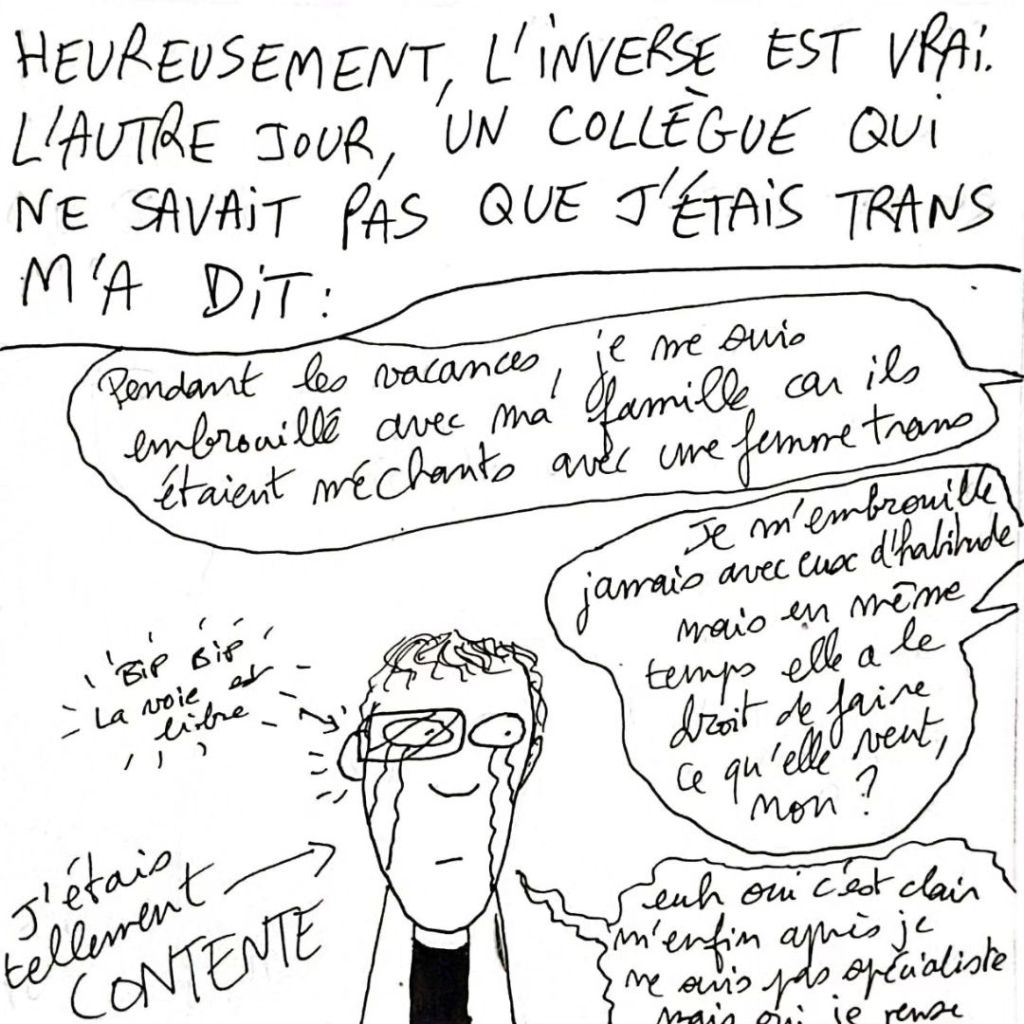 HEUREUSEMENT, L'INVERSE EST VRAI.
L'AUTRE JOUR, UN COLLÈGUE QUI
NE SAVAIT PAS QUE J'ÉTAIS TRANS
M'A DIT :
Pendant les vacances, je me suis
embrouillé avec ma famille car ils
étaient méchants avec une femme trans
Je m'embrouille
jamais avec eux d'habitude
mais en même
temps elle a le
droit de faire
ce qu'elle veut,
non ?
BIP BIP
La voie est
libre
J'étais
tellement
CONTENTE
euh oui c'est clair
m'enfin après je
ne suis pas spécialiste
mais oui je pense